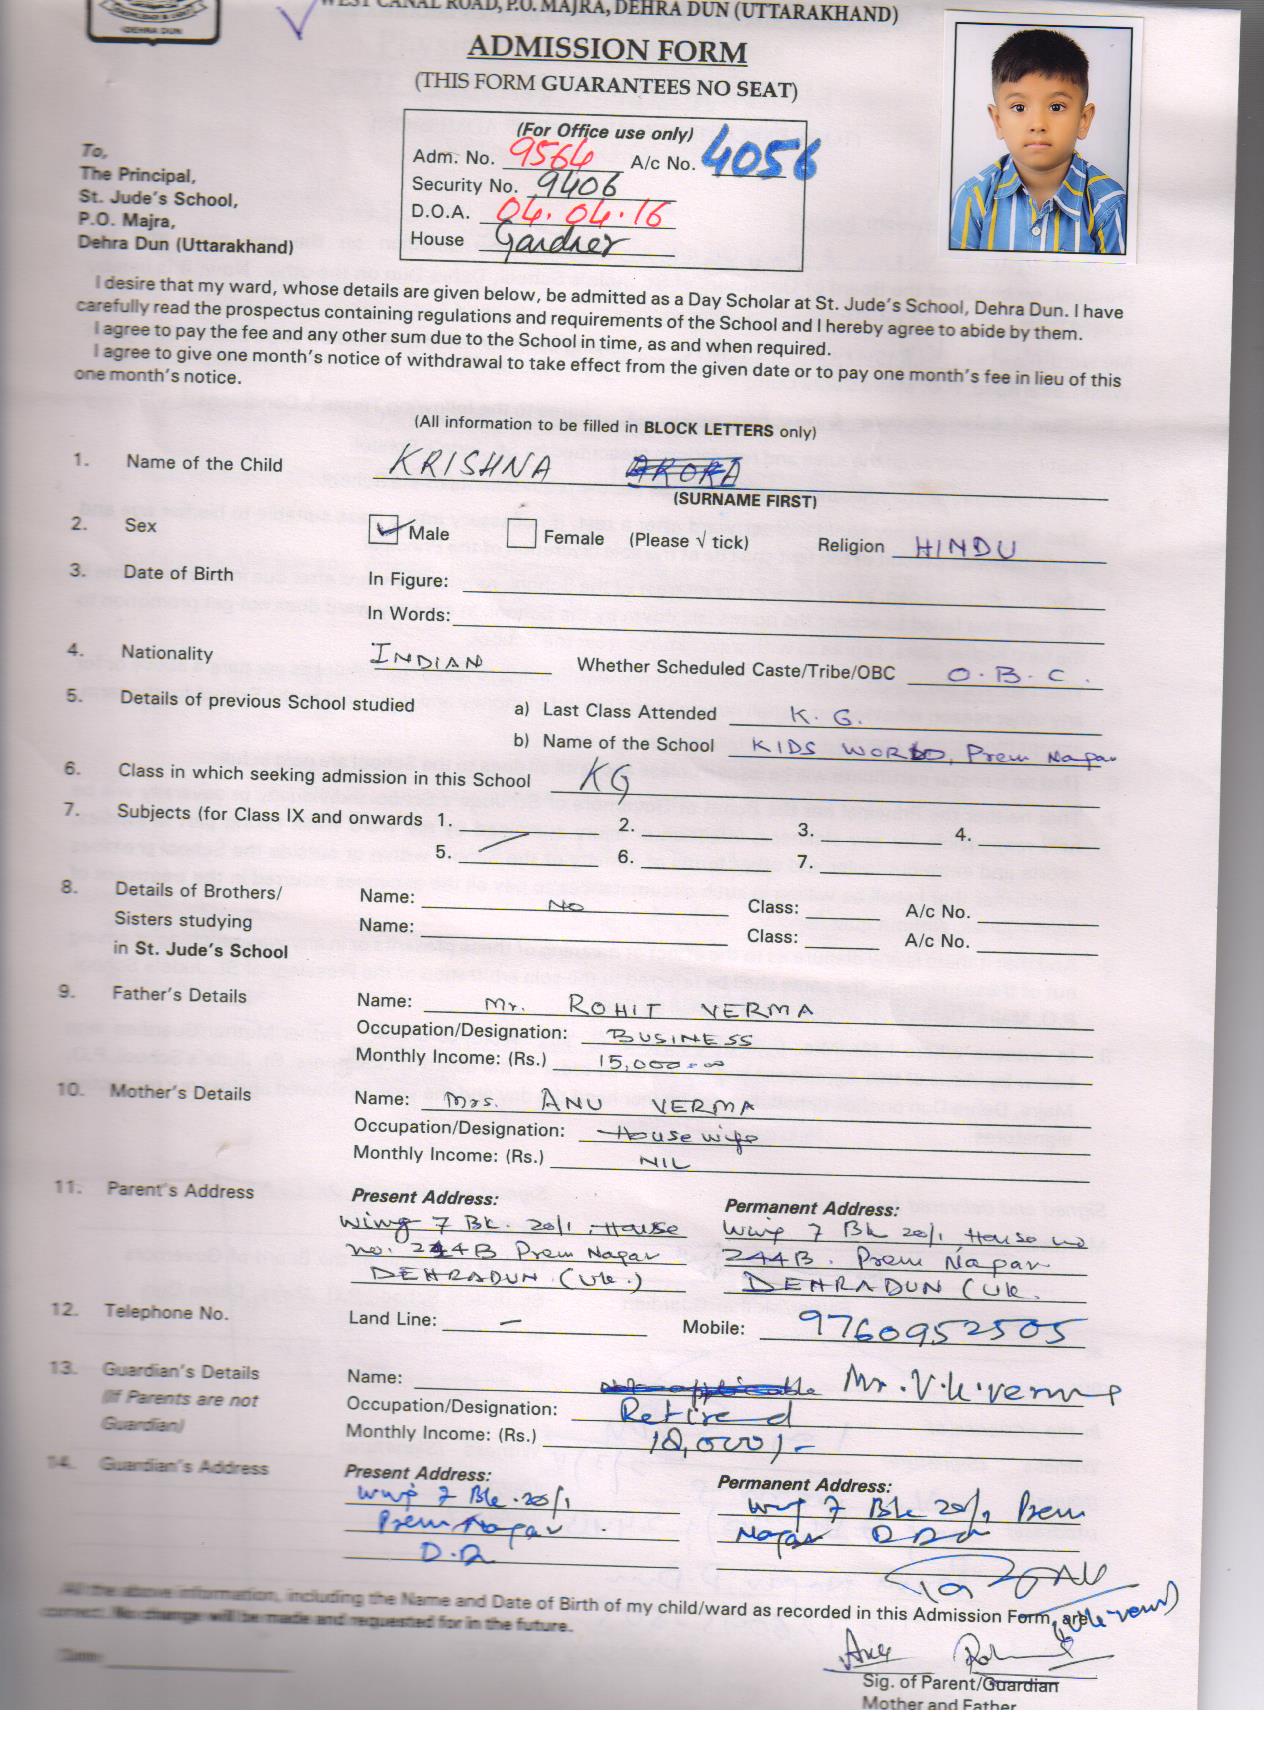 WEST CANAL ROAD, P.O. MAJRA, DEHRA DUN (UTTARAKHAND)
DEHRA DUN
ADMISSION FORM
(THIS FORM GUARANTEES NO SEAT)
(For Office use only)
Adm. No. 9564 A/c No. 4056
Security No. 9406
D.O.A. 04.04.16
House Gardner
To,
The Principal,
St. Jude's School,
P.O. Majra,
Dehra Dun (Uttarakhand)
I desire that my ward, whose details are given below, be admitted as a Day Scholar at St. Jude's School, Dehra Dun. I have
carefully read the prospectus containing regulations and requirements of the School and I hereby agree to abide by them.
I agree to pay the fee and any other sum due to the School in time, as and when required.
I agree to give one month's notice of withdrawal to take effect from the given date or to pay one month's fee in lieu of this
one month's notice.
(All information to be filled in BLOCK LETTERS only)
1. Name of the Child KRISHNA ARORA
(SURNAME FIRST)
2. Sex Male Female (Please √ tick) Religion HINDU
3. Date of Birth In Figure:
In Words:
4. Nationality INDIAN Whether Scheduled Caste/Tribe/OBC O.B.C.
5. Details of previous School studied a) Last Class Attended K.G.
b) Name of the School KIDS WORLD, Prem Nagar
6. Class in which seeking admission in this School KG
7. Subjects (for Class IX and onwards 1. 2. 3. 4.
5. 6. 7.
8. Details of Brothers/ Name: No Class: A/c No.
Sisters studying Name: Class: A/c No.
in St. Jude's School
9. Father's Details Name: Mr. ROHIT VERMA
Occupation/Designation: BUSINESS
Monthly Income: (Rs.) 15,000=00
10. Mother's Details Name: Mrs. ANU VERMA
Occupation/Designation: House wife
Monthly Income: (Rs.) NIL
11. Parent's Address Present Address: Permanent Address:
Wing 7 Bk. 20/1 House Wing 7 Bk 20/1 House no
no. 244B Prem Nagar 244B. Prem Nagar
DEHRADUN (Uk.) DEHRADUN (Uk.
12. Telephone No. Land Line: – Mobile: 9760952505
13. Guardian's Details Name: Not applicable Mr. V.K. verma
(If Parents are not Occupation/Designation: Retired
Guardian) Monthly Income: (Rs.) 18,000/-
14. Guardian's Address Present Address: Permanent Address:
Wing 7 Blk. 20/1 Wing 7 Blk 20/1 Prem
Prem Nagar Nagar D Dn
D.D
All the above information, including the Name and Date of Birth of my child/ward as recorded in this Admission Form, are
correct. No change will be made and requested for in the future.
Date:
Sig. of Parent/Guardian
Mother and Father